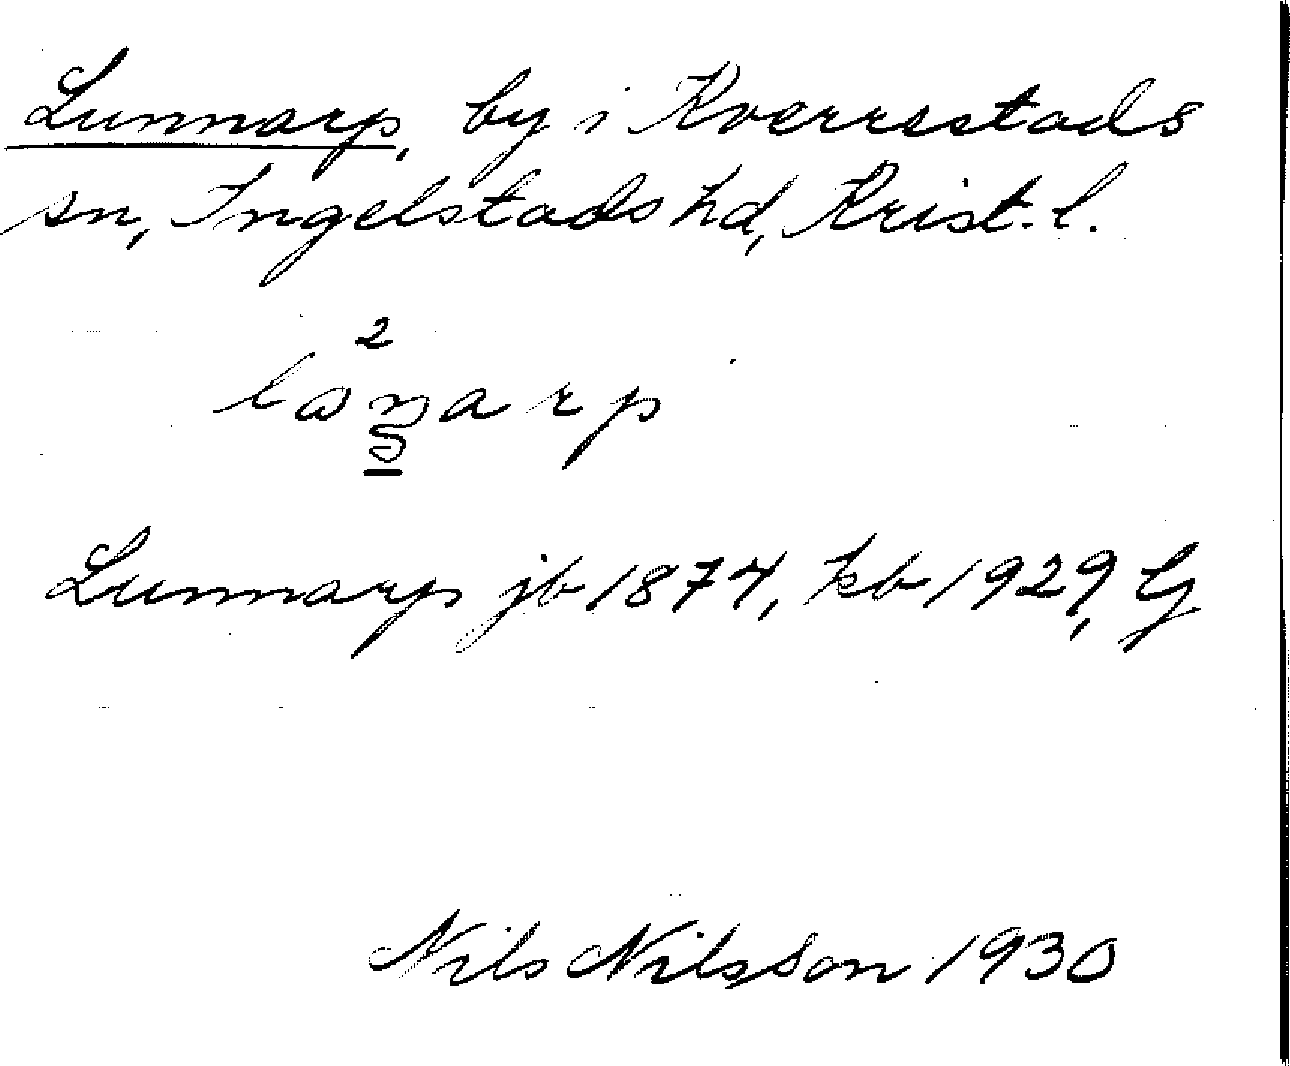 Lunnarp, by i Kverrestads
sn, Ingelstads hd, Krist. l.
2
Lunnarp jb 1874, kb 1929, G
Nils Nilsson 1930